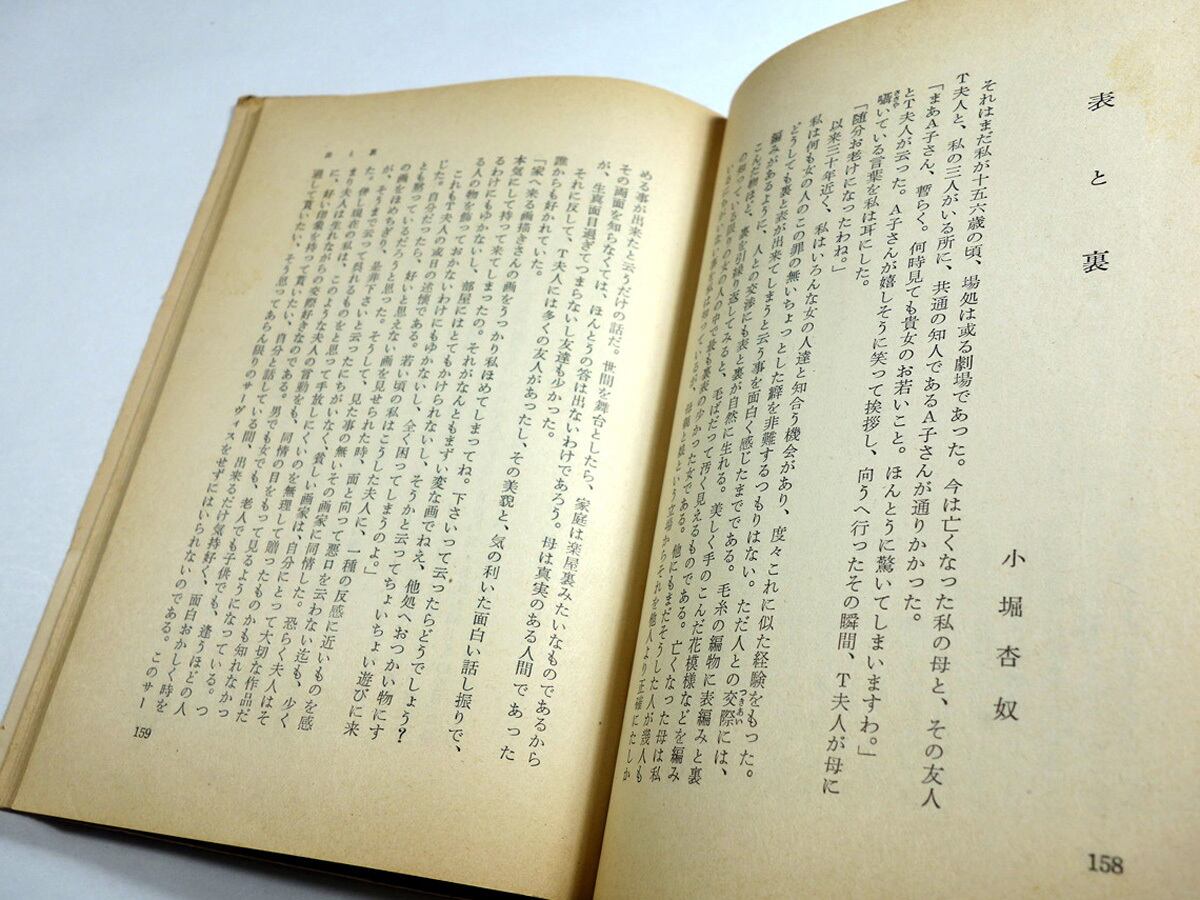 表と裏
小堀杏奴
それはまだ私が十五六歳の頃、場処は或る劇場であった。今は亡くなった私の母と、その友人
T夫人と、私の三人がいる所に、共通の知人であるA子さんが通りかかった。
「まあA子さん、暫らく。何時見ても貴女のお若いこと。ほんとうに驚いてしまいますわ。」
とT夫人が云った。A子さんが嬉しそうに笑って挨拶し、向うへ行ったその瞬間、T夫人が母に
囁いている言葉を私は耳にした。
ささや
「随分お老けになったわね。」
以来三十年近く、私はいろんな女の人達と知合う機会があり、度々これに似た経験をもった。
私は何も女の人のこの罪の無いちょっとした癖を非難するつもりはない。ただ人との交際には、
つきあい
どうしても裏と表が出来てしまうと云う事を面白く感じたまでである。毛糸の編物に表編みと裏
編みがあるように、人との交渉にも表と裏が自然に生れる。美しく手のこんだ花模様などを編み
こんだ物ほど、裏を引繰り返してみると、毛ばだって汚く見えるものである。亡くなった母は私
の知っている限りの女の人の中で最も裏表の少かった女である。他にもまだそうした人が幾人も
母親と娘という立場からそれを他人より正確にたしか
める事が出来たと云うだけの話だ。世間を舞台としたら、家庭は楽屋裏みたいなものであるから
その画面を知らなくては、ほんとうの答は出ないわけであろう。母は真実のある人間であった
が、生真面目過ぎてつまらないし友達も少かった。
それに反して、T夫人には多くの友人があったし、その美貌と、気の利いた面白い話し振りで、
誰からも好かれていた。
「家へ来る画描きさんの画をうっかり私ほめてしまってね。下さいって云ったらどうでしょう?
本気にして持って来てしまったの。それがなんともまずい変な画でねえ、他処へおつかい物にす
るわけにもゆかないし、部屋にはとてもかけられないし、そうかと云ってちょいちょい遊びに来
る人の物を飾っておかないわけにもゆかないし、全く困ってしまうのよ。」
これもT夫人の或日の述懐である。若い頃の私はこうした夫人に、一種の反感に近いものを感
じた。自分だったら、好いと思えない画を見せられた時、面と向って悪口を云わない迄も、少く
とも黙っているだろうと思った。そうして、見た事の無いその画家に同情した。恐らく夫人はそ
の画をほめちぎり、是非下さいと云ったにちがいなく、貧しい画家は、自分にとって大切な作品だ
が、そうまで云って呉れるものをと思って手放しにくいのを無理して贈ったものかも知れなかっ
た。併し現在の私は、このような夫人の言動をも、同情の目をもって見るようになっている。つ
まり夫人は生れながらの交際好きなのである。男でも女でも、老人でも子供でも、逢うほどの人
に、好い印象を持って貰いたい、自分と話している間も、出来るだけ気持好く、面白おかしく時を
過して貰いたい、そう思ってあらん限りのサーヴィスをせずにはいられないのである。このサー
表と裏
158
159